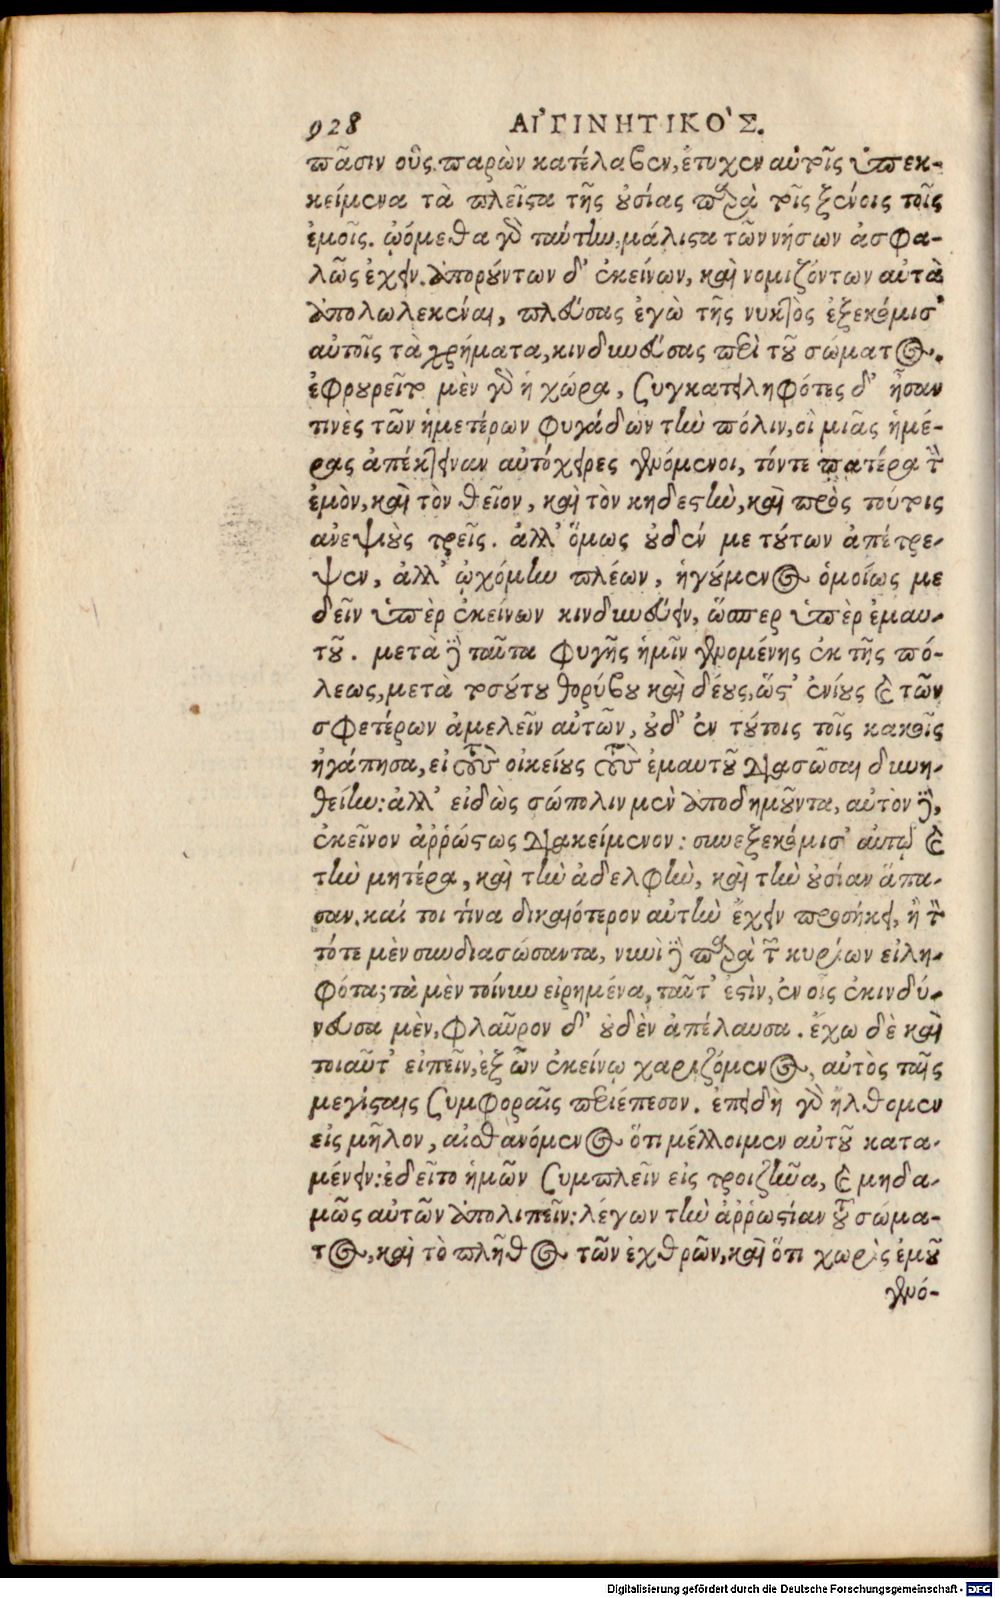 928 ΑἸΓΙΝΗΤΙΚΟ`Σ.
πᾶσιν οὓς παρὼν κατέλαβεν, ἔτυχεν αὐτοῖς ὑπεκ-
κείμενα τὰ πλεῖστα τῆς οὐσίας παρὰ τοῖς ξένοις τοῖς
ἐμοῖς. ᾠόμεθα γὰρ ταύτην μάλιστα τῶν νήσων ἀσφα-
λῶς ἔχειν. ἀπορούντων δ' ἐκείνων, καὶ νομιζόντων αὐτὰ
ἀπολωλεκέναι, πλεύσας ἐγὼ τῆς νυκτὸς ἐξεκόμισ'
αὐτοῖς τὰ χρήματα, κινδυνεύσας περὶ τοῦ σώματος.
ἐφρουρεῖτο μὲν γὰρ ἡ χώρα, συγκατειληφότες δ' ἦσαν
τινὲς τῶν ἡμετέρων φυγάδων τὴν πόλιν, οἳ μιᾶς ἡμέ-
ρας ἀπέκτειναν αὐτόχειρες γενόμενοι, τόντε πατέρα τὸν
ἐμὸν, καὶ τὸν θεῖον, καὶ τὸν κηδεστὴν, καὶ πρὸς τούτοις
ἀνεψιοὺς τρεῖς. ἀλλ' ὅμως οὐδέν με τούτων ἀπέτρε-
ψεν, ἀλλ' ᾠχόμην πλέων, ἡγούμενος ὁμοίως με
δεῖν ὑπὲρ ἐκείνων κινδυνεύειν, ὥσπερ ὑπὲρ ἐμαυ-
τοῦ. μετὰ δὲ ταῦτα φυγῆς ἡμῖν γενομένης ἐκ τῆς πό-
λεως, μετὰ τοσούτου θορύβου καὶ δέους, ὥστ' ἐνίους καὶ τῶν
σφετέρων ἀμελεῖν αὐτῶν, οὐδ' ἐν τούτοις τοῖς κακοῖς
ἠγάπησα, εἰ τοὺς οἰκείους τοὺς ἐμαυτοῦ διασῶσαι δυνη-
θείην: ἀλλ' εἰδὼς σώπολιν μὲν ἀποδημοῦντα, αὐτὸν δὲ,
ἐκεῖνον ἀῤῥώστως διακείμενον: συνεξεκόμισ' αὐτῷ καὶ
τὴν μητέρα, καὶ τὴν ἀδελφὴν, καὶ τὴν οὐσίαν ἅπα-
σαν. καί τοι τίνα δικαιότερον αὐτὴν ἔχειν προσήκει, ἢ τὸν
τότε μὲν συνδιασώσαντα, νυνὶ δὲ παρὰ τῶν κυρίων εἰλη-
φότα; τὰ μὲν τοίνυν εἰρημένα, ταῦτ' ἐστὶν, ἐν οἷς ἐκινδύ-
νευσα μὲν, φλαῦρον δ' οὐδὲν ἀπέλαυσα. ἔχω δὲ καὶ
τοιαῦτ' εἰπεῖν, ἐξ ὧν ἐκείνῳ χαριζόμενος, αὐτὸς ταῖς
μεγίσταις συμφοραῖς περιέπεσον. ἐπειδὴ γὰρ ἤλθομεν
εἰς μῆλον, αἰσθανόμενος ὅτι μέλλοιμεν αὐτοῦ κατα-
μένειν: ἐδεῖτο ἡμῶν συμπλεῖν εἰς τροιζῆνα, καὶ μηδα-
μῶς αὐτῶν ἀπολιπεῖν: λέγων τὴν ἀῤῥωστίαν τοῦ σώμα-
τος, καὶ τὸ πλῆθος τῶν ἐχθρῶν, καὶ ὅτι χωρὶς ἐμοῦ
γενό-
Digitalisierung gefördert durch die Deutsche Forschungsgemeinschaft - DFG